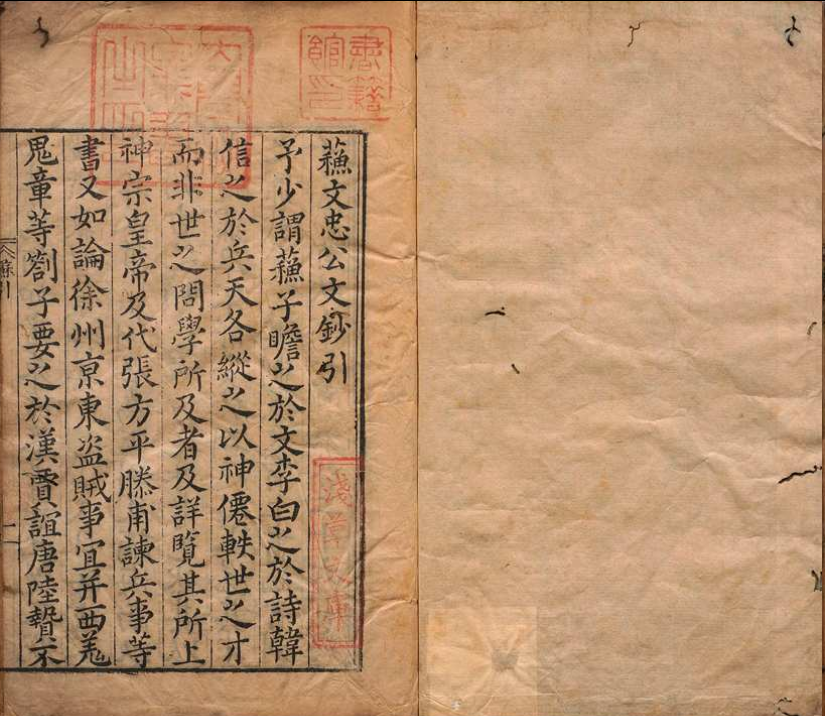 蘓文忠公文鈔引
予少謂蘓子瞻之於文李白之於詩韓
信之於兵天各縱之以神僊軼世之才
而非世之問學所及者及詳覧其所上
神宗皇帝及代張方平滕甫諫兵事等
書又如論徐州京東盗賊事宜并西羌
鬼章等劄子要之於漢賈誼唐陸贄不
蘓引
書籍
館印
淺草文庫